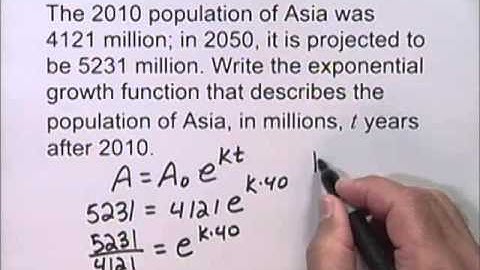 The 2010 population of Asia was
4121 million; in 2050, it is projected to
be 5231 million. Write the exponential
growth function that describes the
population of Asia, in millions, t years
after 2010.
A = A₀ e^{kt}
5231 = 4121 e^{k·40}
5231/4121 = e^{k·40}